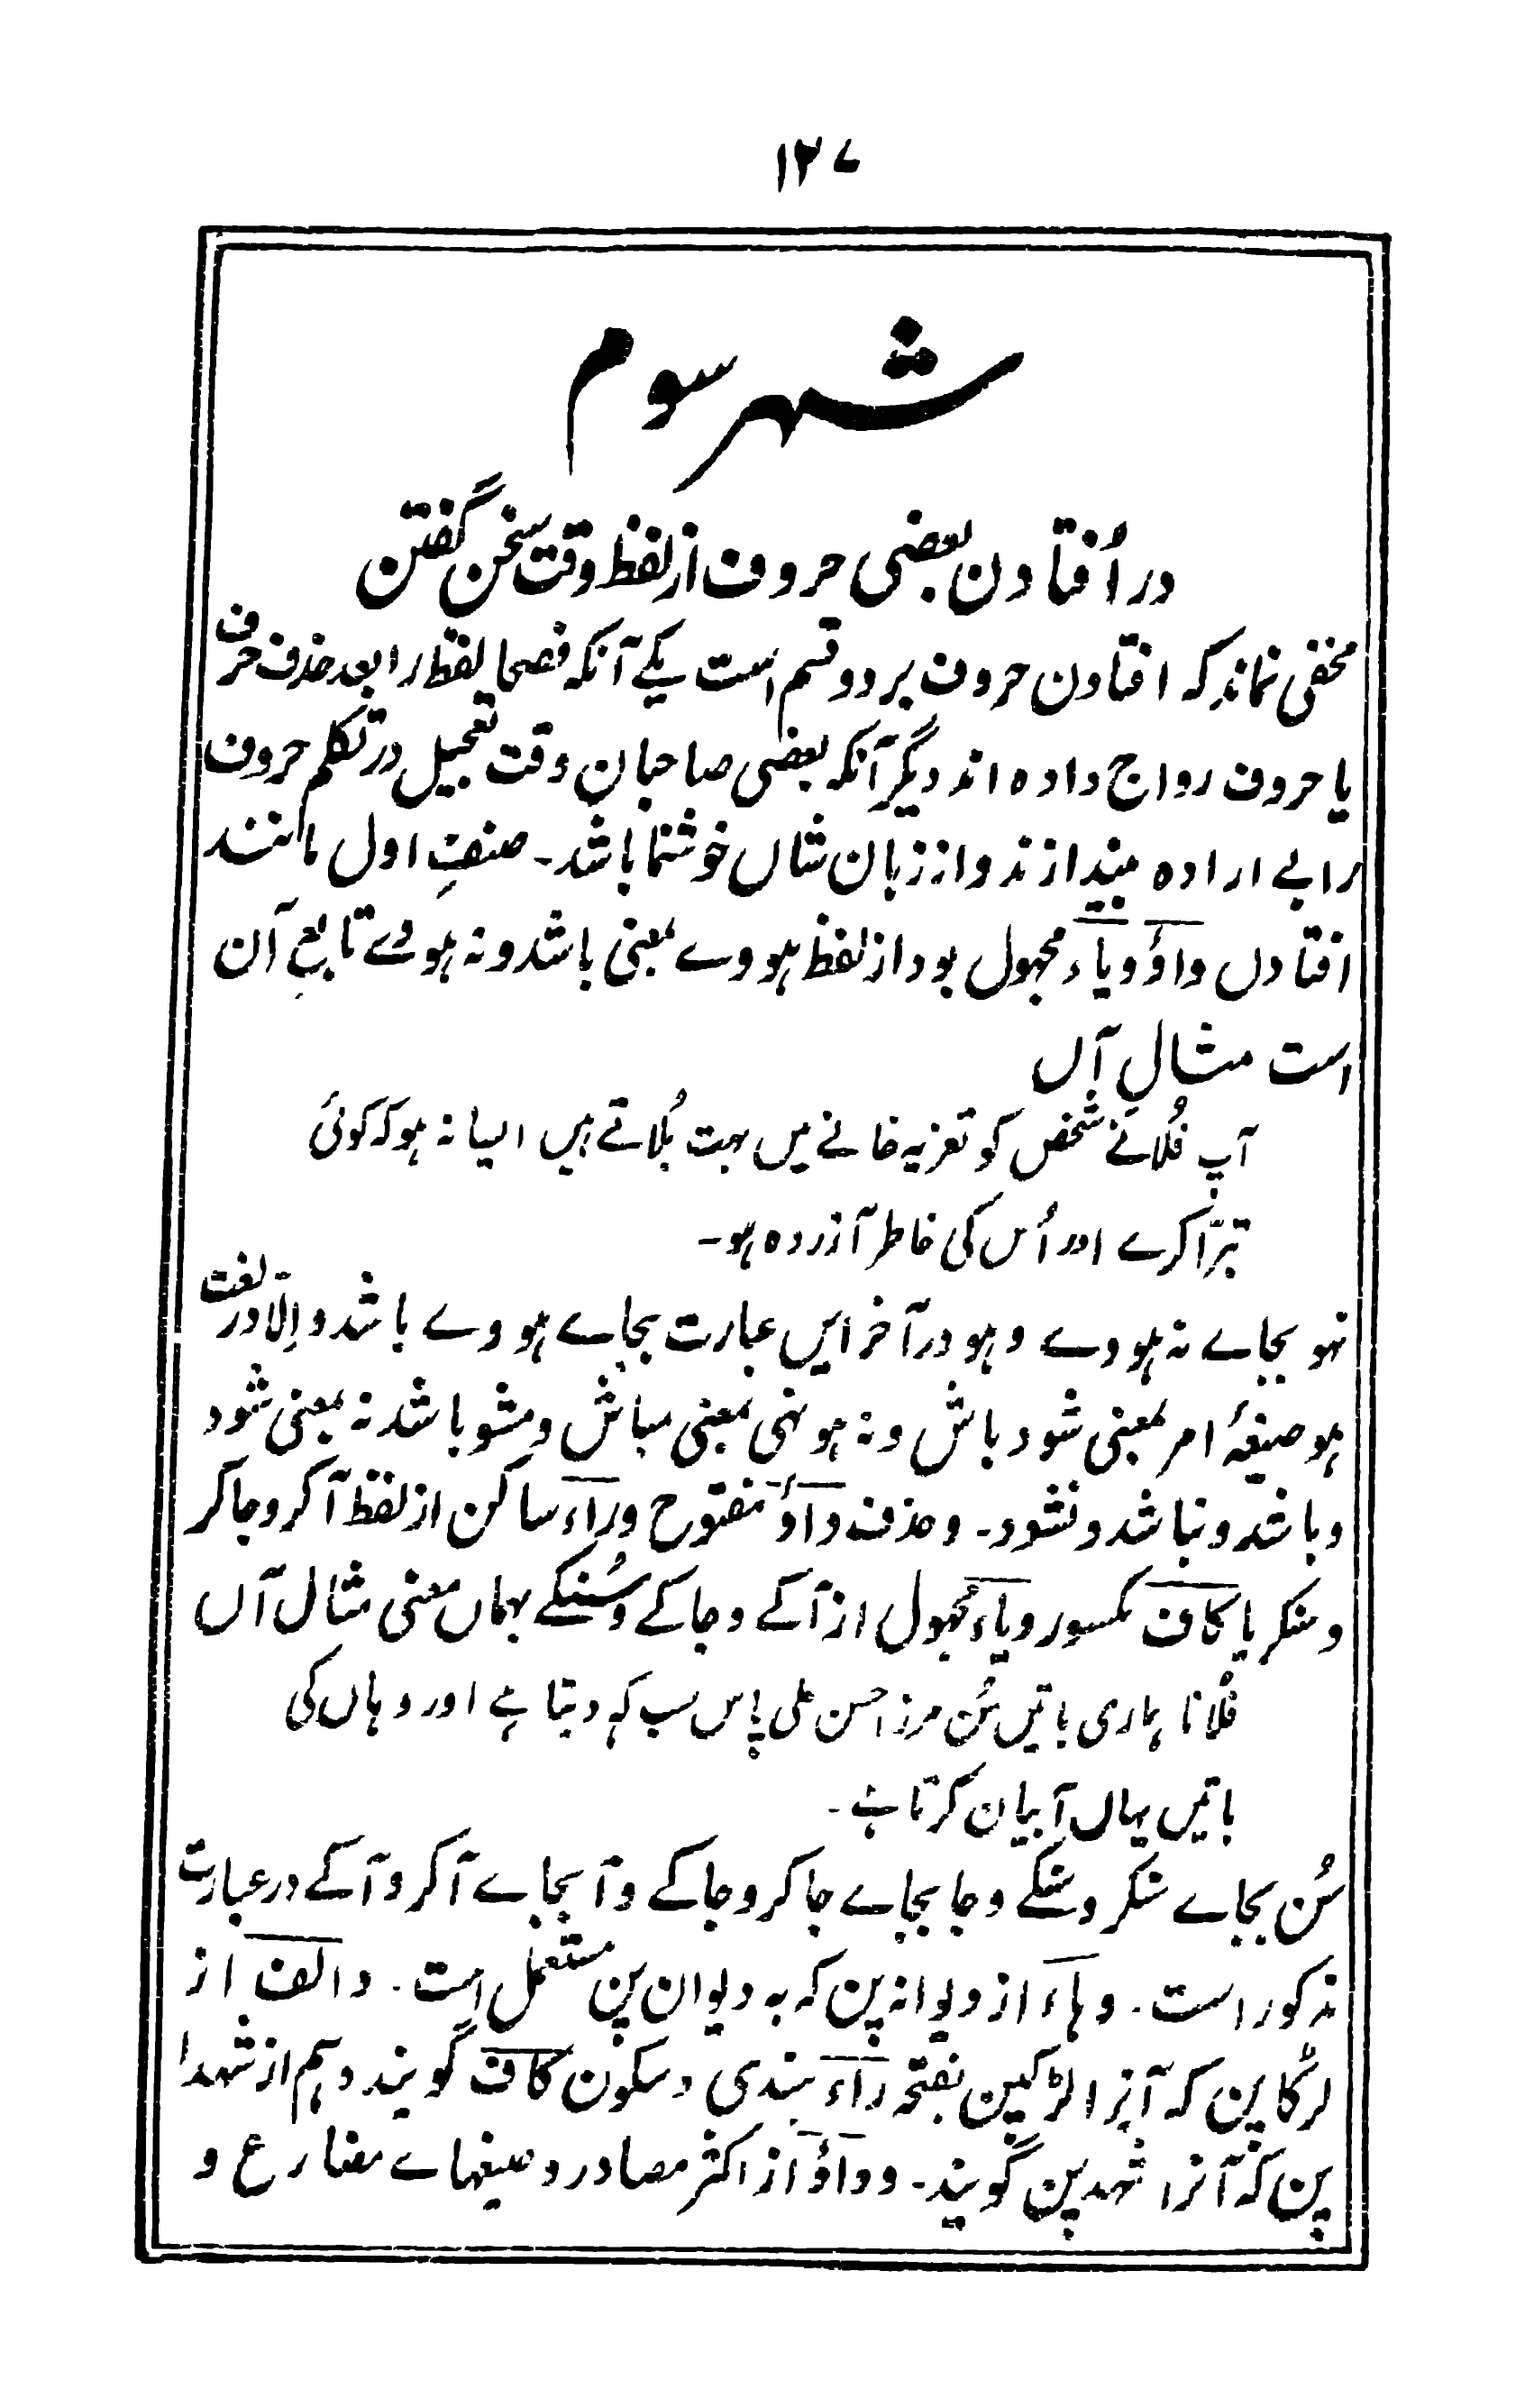 ۱۲۷
شہر سوم
در اُفتادن بعضی حروف از لفظ وقت سخن گفتن
مخفی نماند کہ افتادن حروف بر دو قسم است یکے آنکہ فصحا لفظ را بعد حذف حرف
یا حروف رواج داده اند دیگر آنکہ بعضی صاحبان وقت تعجیل در تکلم حروف
را بے ارادہ بیندازند و از زبان شاں خوشنما باشد۔ صنفِ اول مانند
افتادں واؤ و یاء مجہول بود از لفظ ہووے بمعنی باشد و نہ ہووے تابعِ آن
است مثالِ آں
آپ فُلانے شخص کو تعزیہ خانے میں بہت بُلاتے ہیں ایسا نہ ہو کہ کوئی
تبرّا کرے اور اُس کی خاطر آزردہ ہو۔
نہو بجاے نہ ہووے و ہو در آخر ایں عبارت بجاے ہووے باشد و اِلّا در لغت
ہو صیغۂ امر بمعنی شود باش و نہ ہو نہی بمعنی مباش و مشو باشد نہ بمعنی شود
و باشد و نباشد و نشود۔ و حذف واؤ مفتوح و راء ساکن از لفظ آکر و جاکر
و سنکر یا کاف مکسور و یاء مجہول از آکے و جاکے و سُنکے بہماں معنی مثال آں
فُلانا ہماری باتیں سُن مرزا حسن علی پاس سب کہہ دیتا ہے اور وہاں کی
باتیں یہاں آ بیان کرتا ہے۔
سُن بجاے سنکر و سنکے و جا بجاے جاکر و جاکے و آ بجاے آکر و آکے در عبارت
مذکور است۔ و ہاء از دیوانہ پن کہ بہ دیوان پن مستعمل است۔ و الف از
لڑکاپن کہ آنرا لڑکپن بفتحہ راء ہندی و سکون کاف گویند و ہم از شہدا
پن کہ آنرا شُہد پن گویند۔ و واؤ از اکثر مصادر و صیغہاے مضارع و